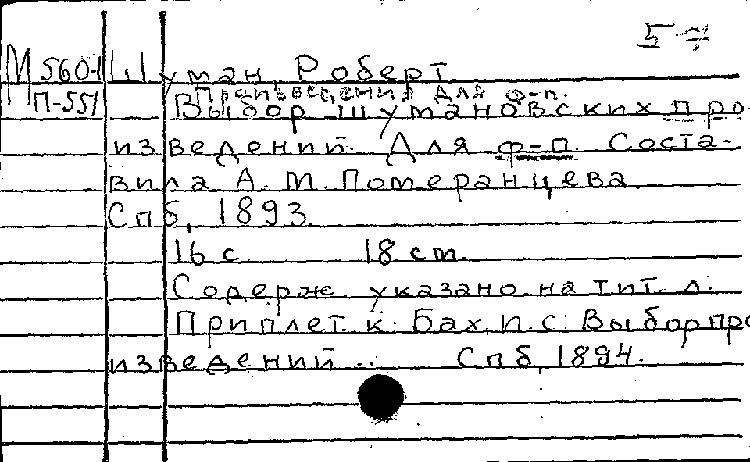 57
М 560-1 Шуман, Роберт
П-551 Произведения для ф-п.
Выбор шумановских про
изведений. Для ф-п. Соста-
вила А. М. Померанцева
Спб, 1893
16 с 18 cm.
Содерж. указано на тит. л.
Приплет. к: Бах, П. С. Выбор про
изведений... Спб, 1894.